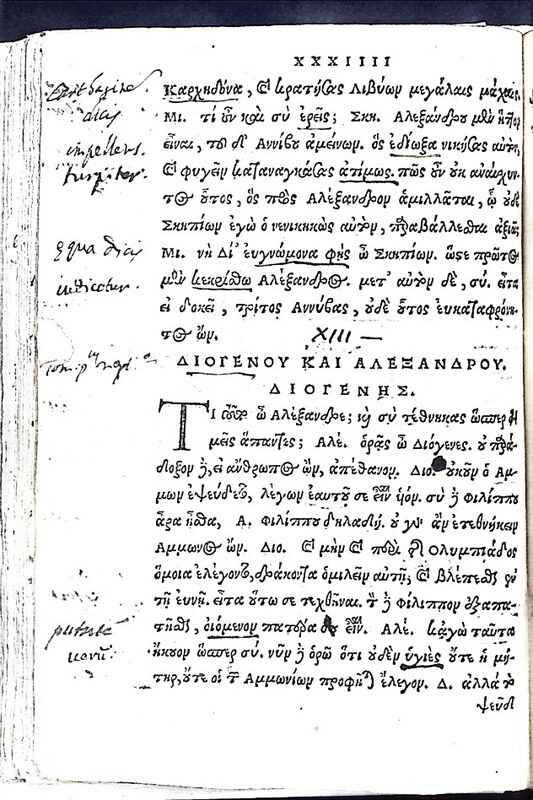 XXXIIII
Καρχηδόνα, καὶ κρατήσας Λιβύων μεγάλαις μάχαις.
Μι. τί οὖν καὶ σὺ ἐρεῖς; Σκη. Αλεξάνδρου μὲν ἥττων
εἶναι, τοῦ δ' Αννίβου ἀμείνων. ὃς ἐδίωξα νικήσας αὐτὸν,
καὶ φυγεῖν καταναγκάσας ἀτίμως. πῶς οὖν οὐκ ἀναίσχυν-
τος οὗτος, ὃς πρὸς Αλέξανδρον ἁμιλλᾶται, ᾧ οὐδὲ
Σκηπίων ἐγὼ ὁ νενικηκὼς αὐτὸν, παραβάλλεσθαι ἀξιῶ;
Μι. νὴ Δί' εὐγνώμονα φῂς ὦ Σκηπίων. ὥστε πρῶτος
μὲν κεκρίσθω Αλέξανδρος. μετ' αὐτὸν δὲ, σύ. εἶτα
εἰ δοκεῖ, τρίτος Αννίβας, οὐδὲ οὗτος εὐκαταφρόνη-
τος ὤν.
XIII
ΔΙΟΓΕΝΟΥ ΚΑΙ ΑΛΕΞΑΝΔΡΟΥ.
ΔΙΟΓΕΝΗΣ.
Τί τοῦτο ὦ Αλέξανδρε; καὶ σὺ τέθνηκας ὥσπερ ἡ-
μεῖς ἅπαντες; Αλέ. ὁρᾷς ὦ Διόγενες. οὐ παρά-
δοξον δὲ, εἰ ἄνθρωπος ὢν, ἀπέθανον. Διο. οὐκοῦν ὁ Αμ-
μων ἐψεύδετο, λέγων ἑαυτοῦ σε εἶναι υἱόν. σὺ δὲ Φιλίππου
ἄρα ἦσθα, Α. Φιλίππου δηλαδή. οὐ γὰρ ἂν ἐτεθνήκειν
Αμμωνος ὤν. Διο. καὶ μὴν καὶ περὶ τῆς Ολυμπιάδος
ὅμοια ἐλέγοντο, δράκοντα ὁμιλεῖν αὐτῇ, καὶ βλέπεσθαι ἐν
τῇ εὐνῇ. εἶτα οὕτω σε τεχθῆναι. τὸν δὲ Φίλιππον ἐξαπα-
τῆσθαι, οἰόμενον πατέρα σου εἶναι. Αλέ. κἀγὼ ταῦτα
ἤκουον ὥσπερ σύ. νῦν δὲ ὁρῶ ὅτι οὐδὲν ὑγιὲς οὔτε ἡ μή-
τηρ, οὔτε οἱ τῶν Αμμωνίων προφῆται ἔλεγον. Δ. ἀλλὰ τὸ
ψεῦδος
impellens.
turpiter.
aequa dicis
iudicetur.